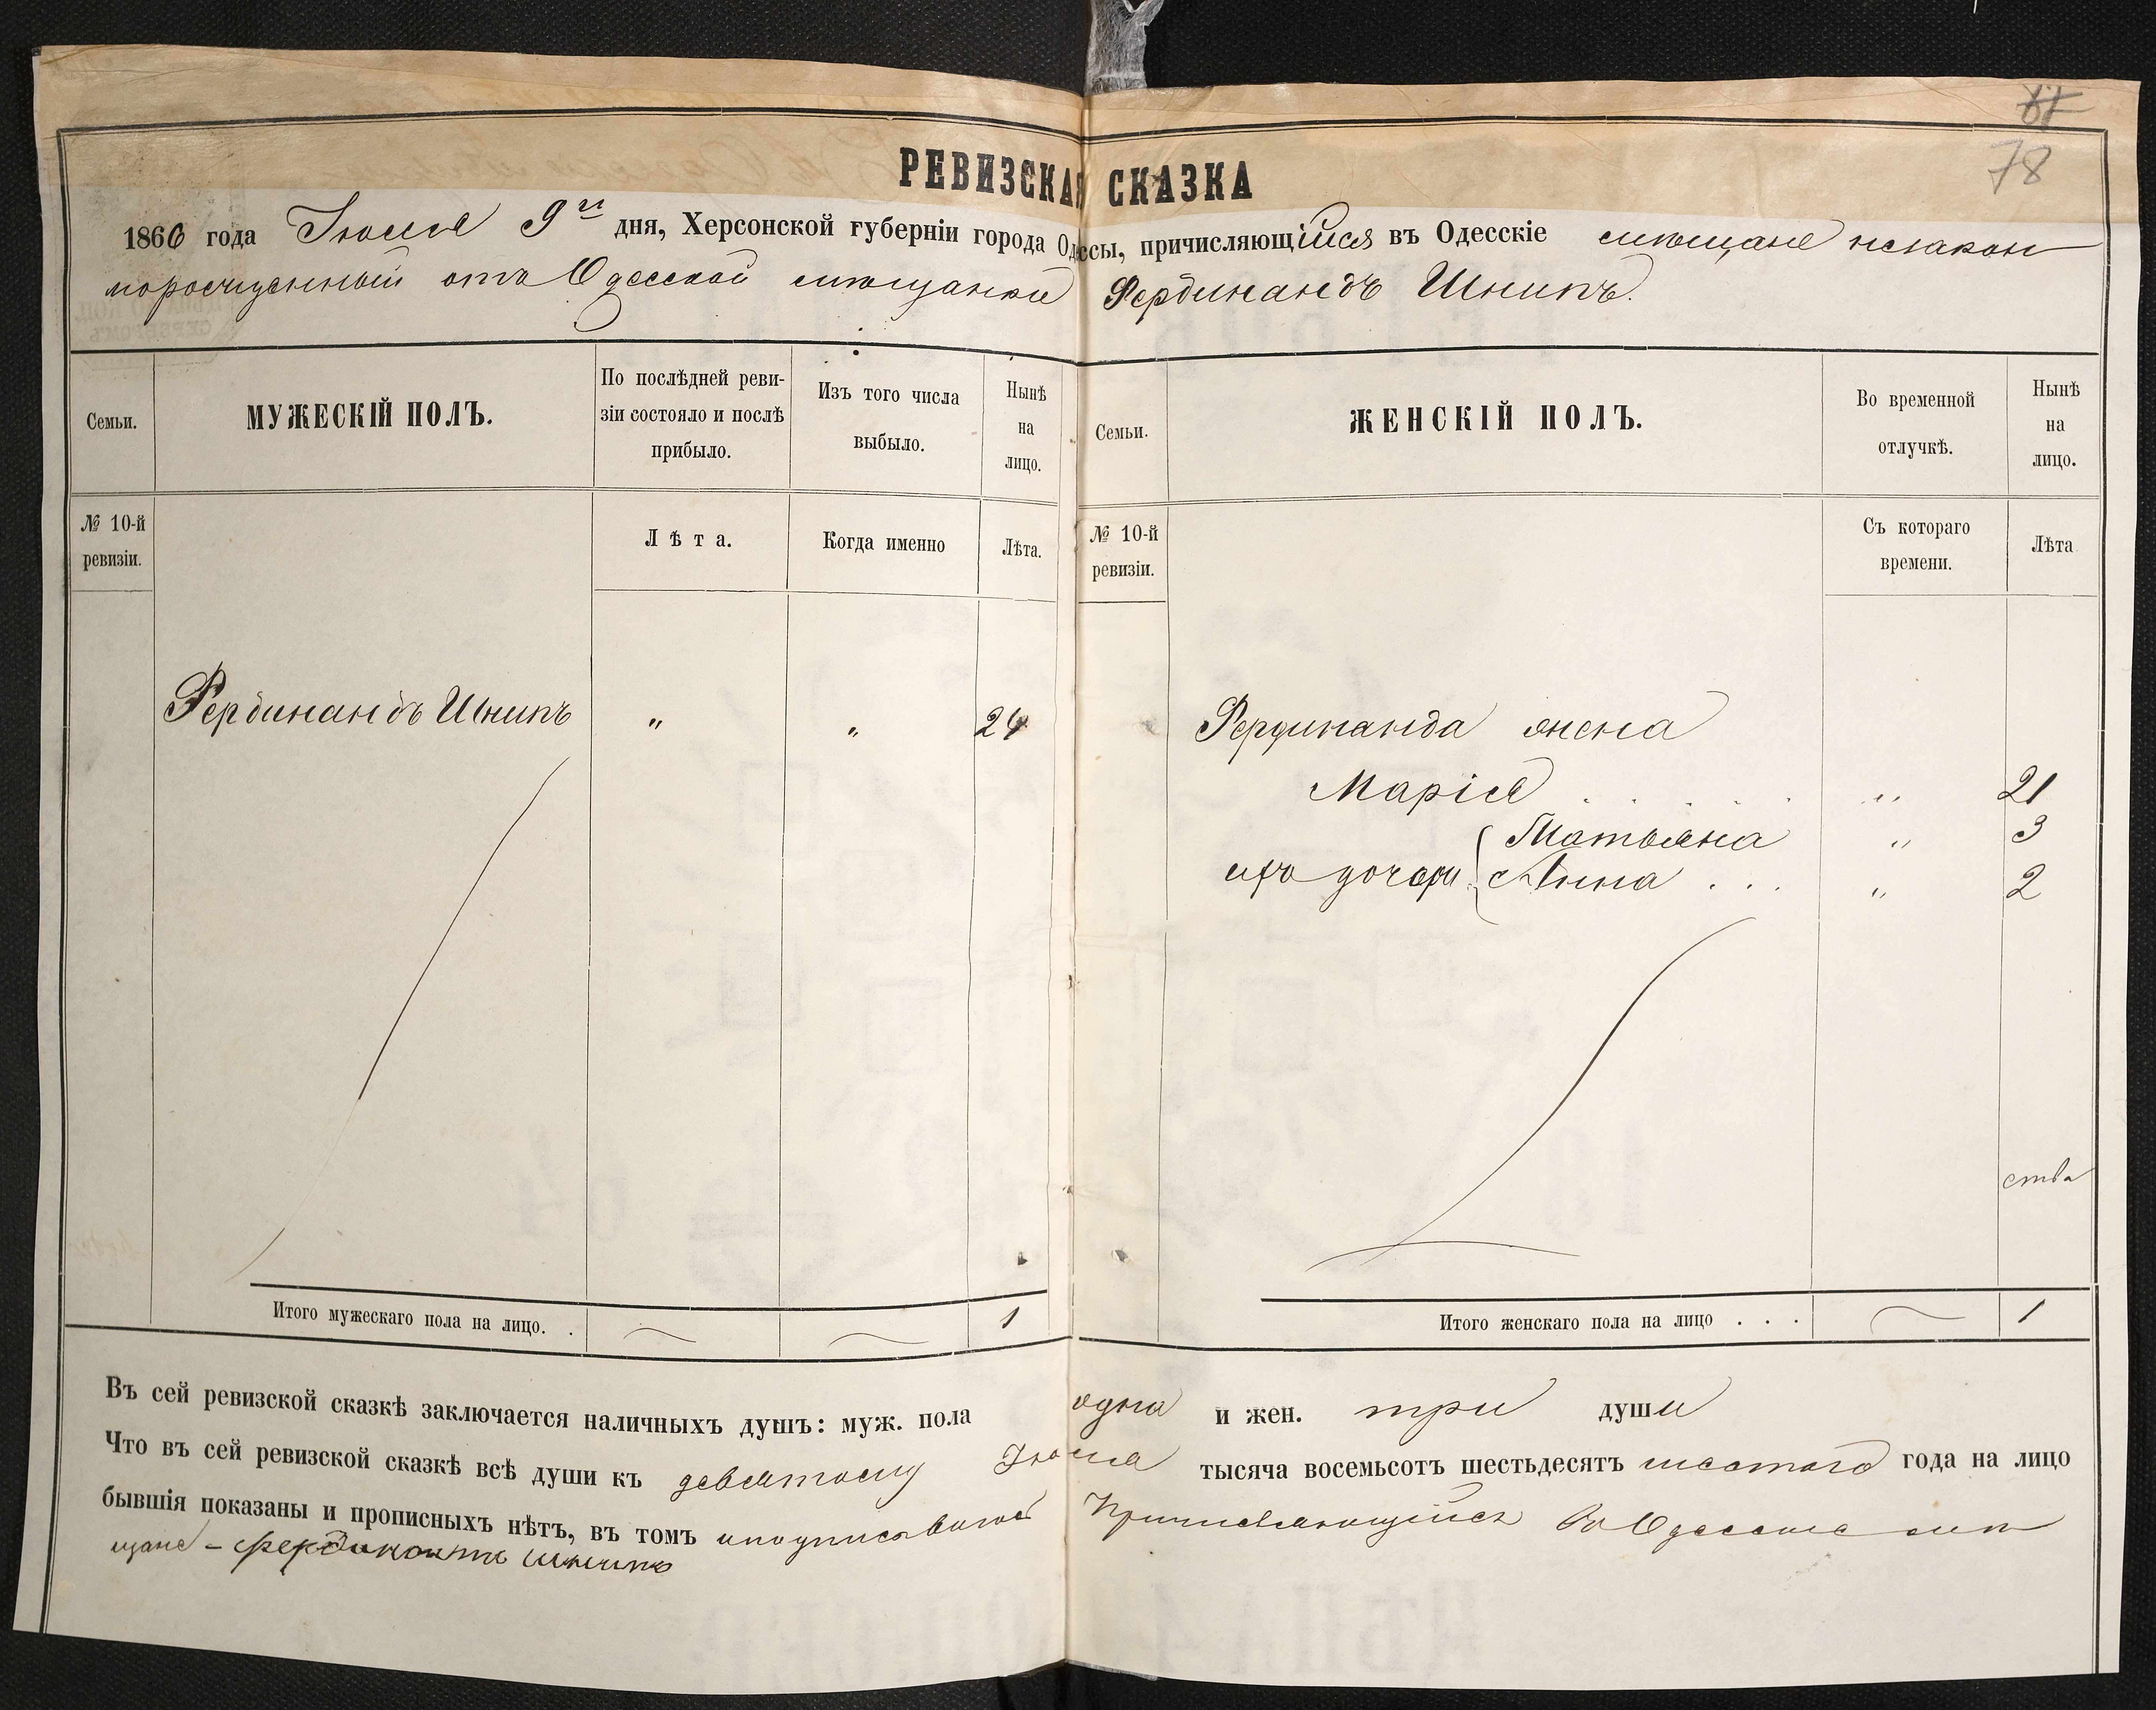 78
РЕВИЗСКАЯ СКАЗКА
1866 года Іюня 9го дня, Херсонской губерніи города Одессы, причисляющійся въ Одесскіе мѣщане незакон
норожденный отъ Одесской мѣщанки Фердинандъ Шнипъ.
Семьи.
МУЖЕСКІЙ ПОЛЪ.
По послѣдней реви-
зіи состояло и послѣ
прибыло.
Изъ того числа
выбыло.
Нынѣ
на
лицо.
Семьи.
ЖЕНСКІЙ ПОЛЪ.
Во временной
отлучкѣ.
Нынѣ
на
лицо.
№ 10-й
ревизіи.
Лѣта.
Когда именно
Лѣта.
№ 10-й
ревизіи.
Съ котораго
времени.
Лѣта
Фердинандъ Шнипъ " " 24
Фердинанда жена
Марія . . . . . " 21
Татьяна " 3
ихъ дочери Анна . . . " 2
ства
Итого мужескаго пола на лицо. . 1
Итого женскаго пола на лицо . . . 1
Въ сей ревизской сказкѣ заключается наличныхъ душъ: муж. пола одна и жен. три души
Что въ сей ревизской сказкѣ всѣ души къ девятому Іюня тысяча восемьсотъ шестьдесятъ шестаго года на лицо
бывшія показаны и прописныхъ нѣтъ, въ томъ и подписываюсь Причисляющійся въ Одесскіе мѣ
щане - Фердинантъ Шнипъ